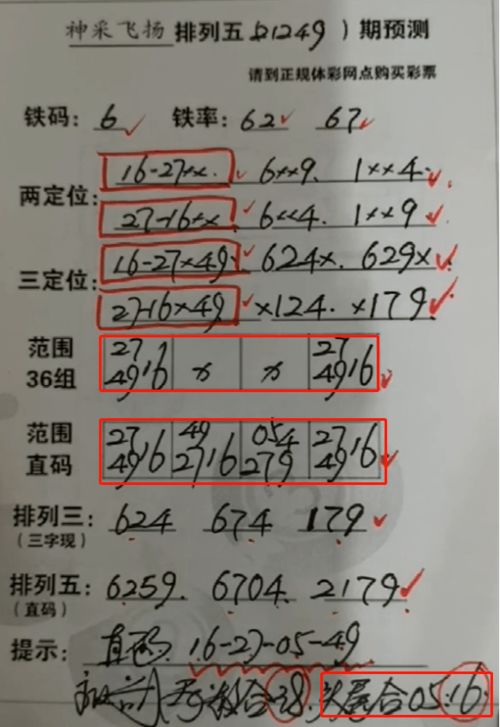 神采飞扬 排列五(21249)期预测
请到正规体彩网点购买彩票
铁码: 6 铁率: 62 67
两定位: 16-27×× 6××9. 1××4.
27-16×× 6××4. 1××9
三定位: 16-27×49 624×. 629×.
27-16×49 ×124. ×179
范围 27 27
36组 4916 × × 4916
范围 27 49 054 2716
直码 4916 2716 279 4916
排列三: 624 674 179
(三字现)
排列五: 6259. 6704. 2179
(直码)
提示: 直码. 16-27-05-49
合38. 头尾合05.16